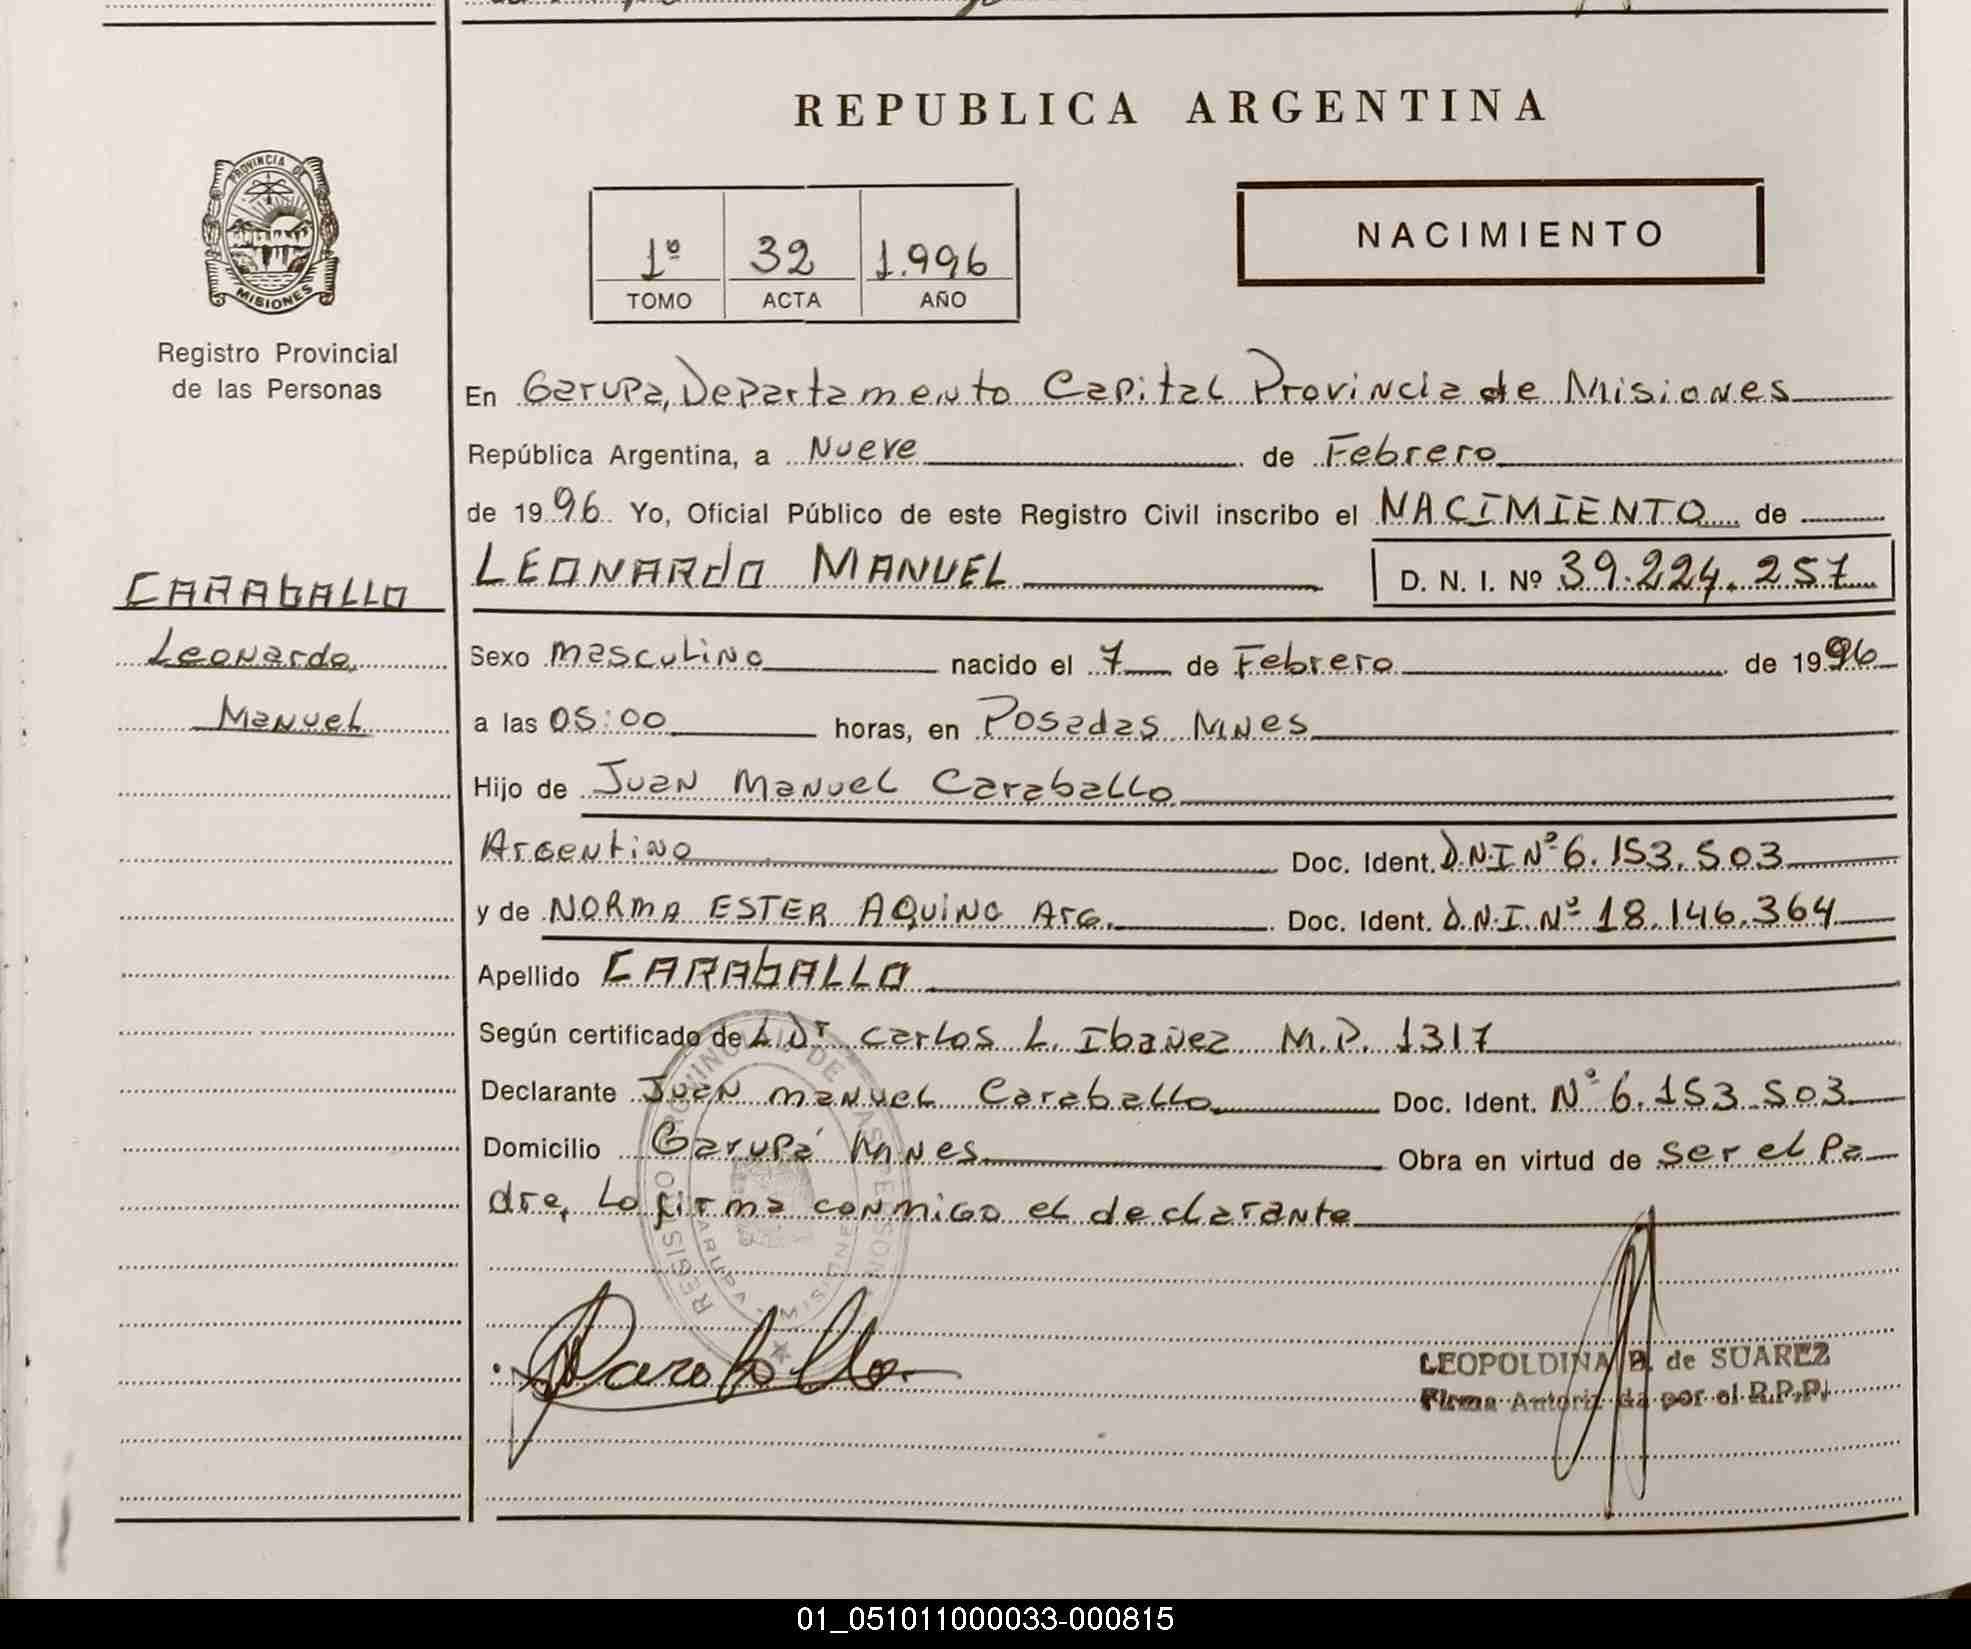 REPUBLICA ARGENTINA
PROVINCIA DE
MISIONES
Registro Provincial
de las Personas
1º 32 1.996
TOMO ACTA AÑO
NACIMIENTO
En Garupa, Departamento Capital Provincia de Misiones
República Argentina, a Nueve de Febrero
de 1996 Yo, Oficial Público de este Registro Civil inscribo el NACIMIENTO de
CARABALLO
Leonardo
Manuel
LEONARDO MANUEL D. N. I. Nº 39.224.257
Sexo masculino nacido el 7 de Febrero de 1996
a las 05:00 horas, en Posadas Mnes
Hijo de Juan Manuel Caraballo
Argentino Doc. Ident. D.N.I Nº 6.153.503
y de NORMA ESTER AQUINO Arg. Doc. Ident. D.N.I. Nº 18.146.364
Apellido CARABALLO
Según certificado de L Dr Carlos L. Ibañez M.P. 1317
Declarante Juan Manuel Caraballo Doc. Ident. Nº 6.153.503
Domicilio Garupá Mnes Obra en virtud de ser el Pa
dre, Lo firma conmigo el declarante
REGISTRO PROVINCIAL DE LAS PERSONAS
GARUPA MISIONES
Caraballo
LEOPOLDINA B. de SUAREZ
Firma Autorizada por el R.P.P.
01_051011000033-000815